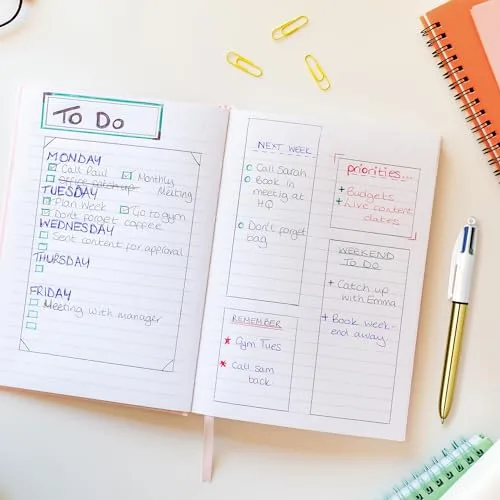 To Do
MONDAY
Call Paul Monthly
Office catch up Meeting
TUESDAY
Plan Week Go to gym
Don't forget coffee
WEDNESDAY
Sent content for approval
THURSDAY
FRIDAY
Meeting with manager
NEXT WEEK
Call Sarah
Book in
meetig at
HQ
Don't forget
bag
REMEMBER
Gym Tues
Call sam
back
priorities...
+ Budgets
+ Live content
dates
WEEKEND
TO DO
+ Catch up
with Emma
+ Book week-
end away